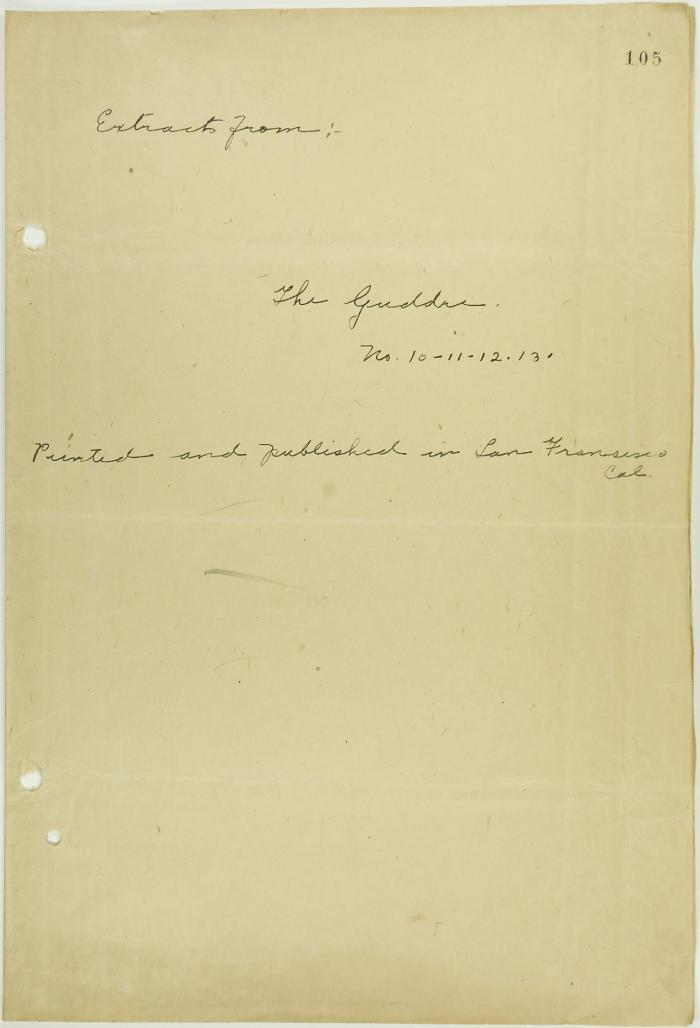 105
Extracts from :-
The Guddre.
No. 10-11-12.13.
Printed and published in San Fransisco
Cal.